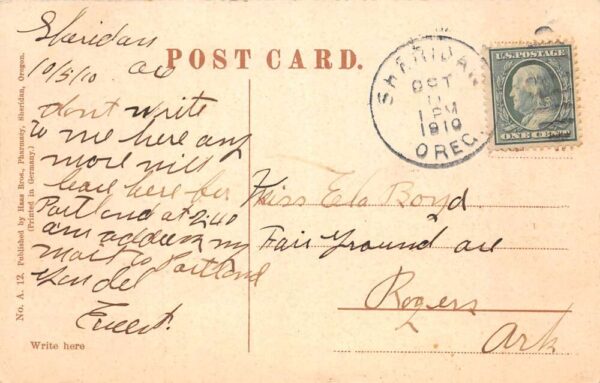 POST CARD.
Sheridan
10/5/10 Ore
dont write
to me here any
more will
leave here for
Portland at 2:40
am address my
mail to Portland
Gen del
Ernest.
Write here
No. A. 12. Published by Haas Bros., Pharmacy, Sheridan, Oregon.
(Printed in Germany.)
SHERIDAN
OCT
1 PM
1910
OREG.
U.S. POSTAGE
ONE CENT
Miss Ela Boyd
Fair Ground ave
Rogers
Ark